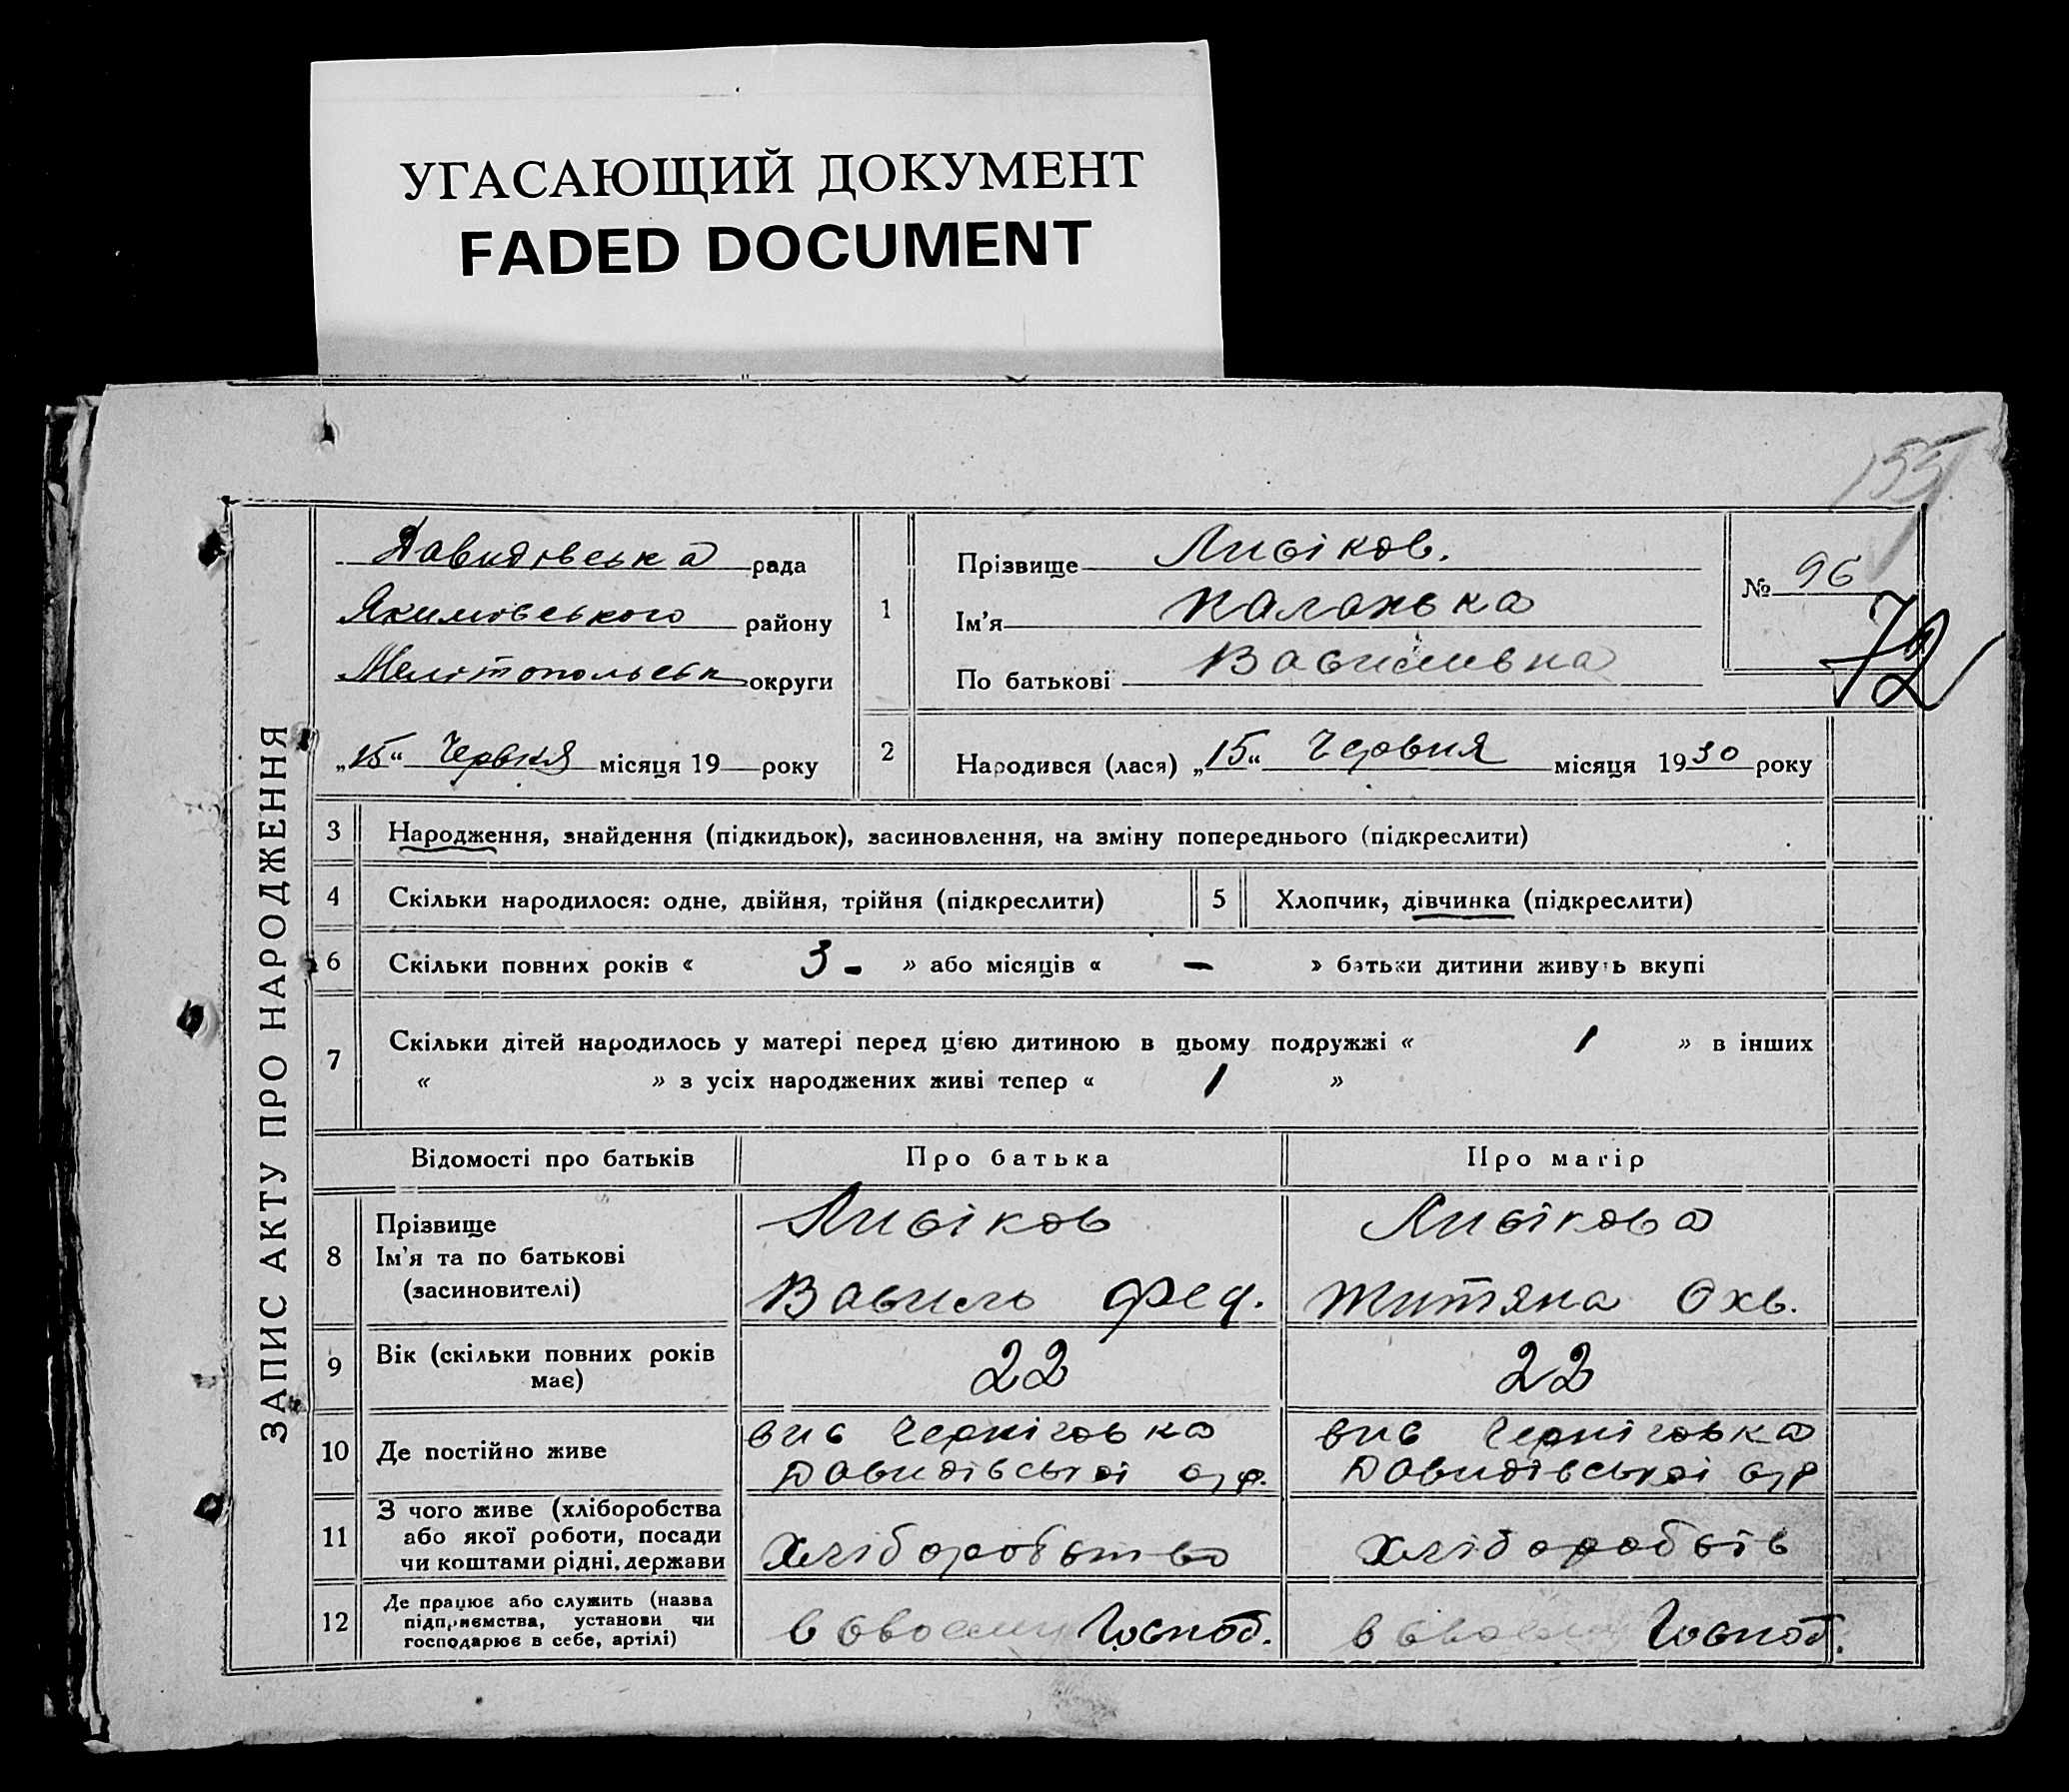 УГАСАЮЩИЙ ДОКУМЕНТ
FADED DOCUMENT
155
ЗАПИС АКТУ ПРО НАРОДЖЕННЯ
Давидівська рада
Якимовського району
Мелітопольськ округи
„15“ Червня місяця 19 року
1
Прізвище Лисіков.
Ім'я Паланька
По батькові Вавиливна
№ 96
72
2
Народився (лася) „15“ Червня місяця 1930 року
3 Народження, знайдення (підкидьок), засиновлення, на зміну попереднього (підкреслити)
4 Скільки народилося: одне, двійня, трійня (підкреслити) 5 Хлопчик, дівчинка (підкреслити)
6 Скільки повних років « 3 - » або місяців « - » батьки дитини живуть вкупі
7 Скільки дітей народилось у матері перед цією дитиною в цьому подружжі « 1 » в інших
« » з усіх народжених живі тепер « 1 »
Відомості про батьків Про батька Про матір
8 Прізвище
Ім'я та по батькові
(засиновителі)
Лисіков
Вавило Фед.
Лисікова
Титяна Охв.
9 Вік (скільки повних років
має)
22
22
10 Де постійно живе
вис Черніговка
Давидівської с/р.
вис Черніговка
Давидівської с/р
11 З чого живе (хліборобства
або якої роботи, посади
чи коштами рідні, держави
Хліборобство
Хліборобств
12 Де працює або служить (назва
підприємства, установи чи
господарює в себе, артілі)
в своєму Господ.
в своєму Господ.